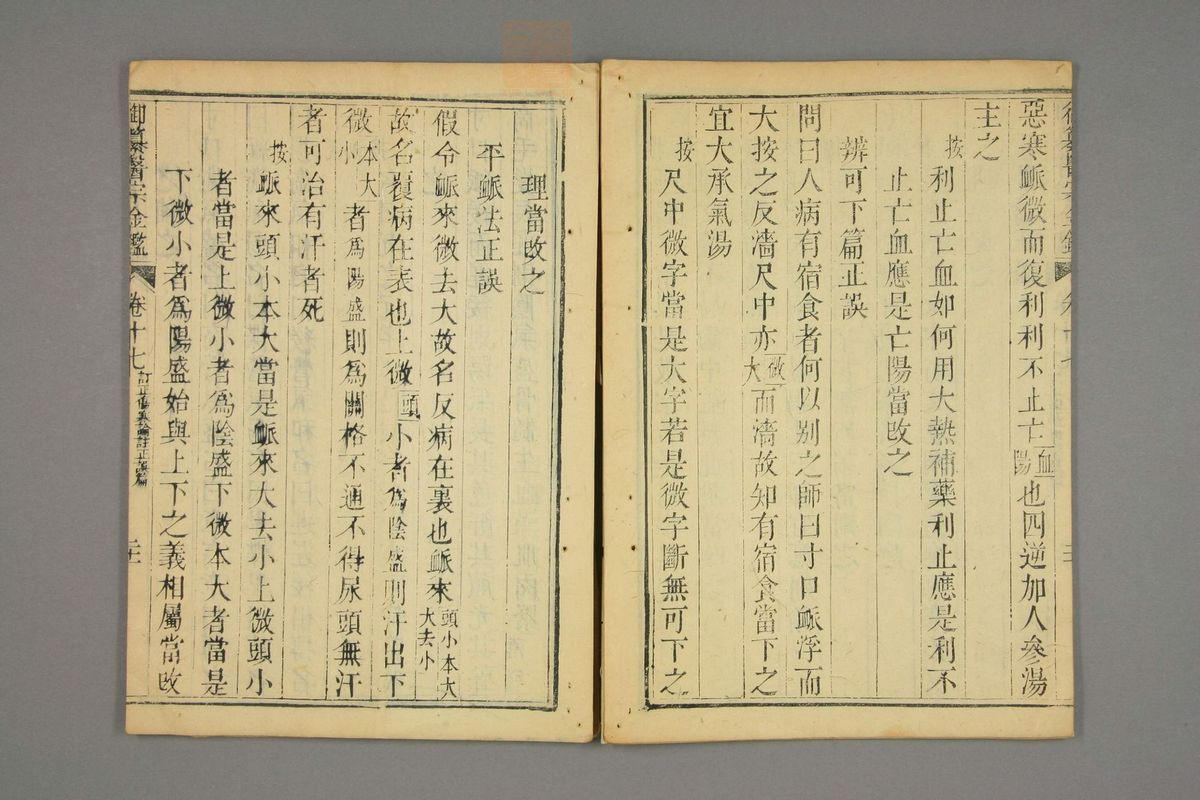 惡寒脈微而復利利不止亡血陽也四逆加人參湯
主之
按利止亡血如何用大熱補藥利止應是利不
止亡血應是亡陽當改之
辨可下篇正誤
問曰人病有宿食者何以别之師曰寸口脈浮而
大按之反濇尺中亦微大而濇故知有宿食當下之
宜大承氣湯
按尺中微字當是大字若是微字斷無可下之
理當改之
平脈法正誤
假令脈來微去大故名反病在裏也脈來頭小本大大去小
故名覆病在表也上微頭小者爲陰盛則汗出下
微本大小者爲陽盛則爲關格不通不得尿頭無汗
者可治有汗者死
按脈來頭小本大當是脈來大去小上微頭小
者當是上微小者爲陰盛下微本大者當是
下微小者爲陽盛始與上下之義相屬當改
御纂醫宗金鑑 卷十七 訂正傷寒論註正誤篇